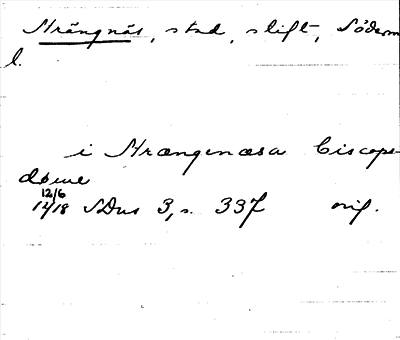 Strängnäs, stad, stift, Söderm
l.
i Strængenæsa biscops-
døme
12/6
1418 SDns 3, s. 337 orig.